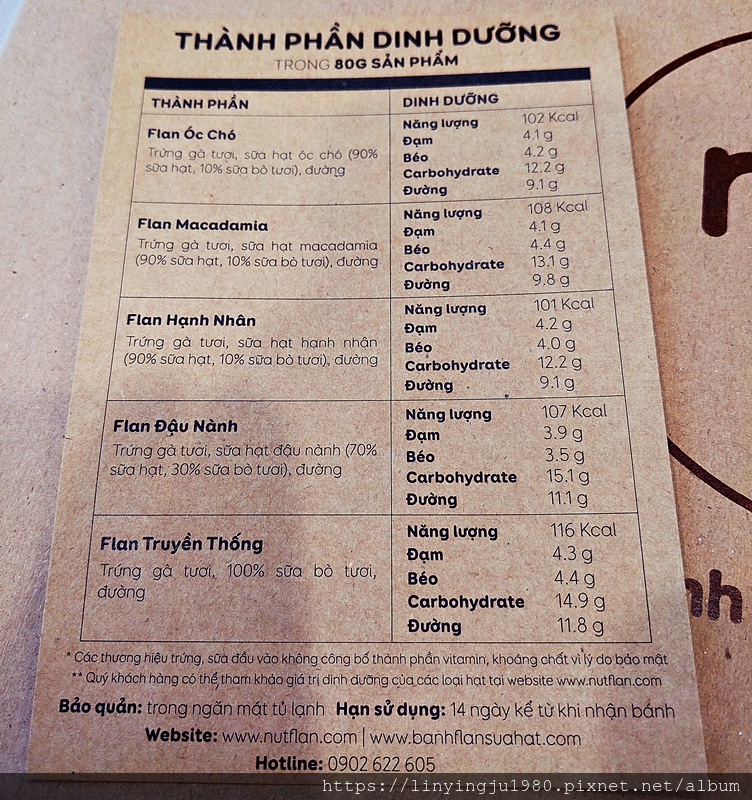 THÀNH PHẦN DINH DƯỠNG
TRONG 80G SẢN PHẨM
THÀNH PHẦN
DINH DƯỠNG
Flan Óc Chó
Trứng gà tươi, sữa hạt óc chó (90%
sữa hạt, 10% sữa bò tươi), đường
Năng lượng 102 Kcal
Đạm 4.1 g
Béo 4.2 g
Carbohydrate 12.2 g
Đường 9.1 g
Flan Macadamia
Trứng gà tươi, sữa hạt macadamia
(90% sữa hạt, 10% sữa bò tươi), đường
Năng lượng 108 Kcal
Đạm 4.1 g
Béo 4.4 g
Carbohydrate 13.1 g
Đường 9.8 g
Flan Hạnh Nhân
Trứng gà tươi, sữa hạt hạnh nhân
(90% sữa hạt, 10% sữa bò tươi), đường
Năng lượng 101 Kcal
Đạm 4.2 g
Béo 4.0 g
Carbohydrate 12.2 g
Đường 9.1 g
Flan Đậu Nành
Trứng gà tươi, sữa hạt đậu nành (70%
sữa hạt, 30% sữa bò tươi), đường
Năng lượng 107 Kcal
Đạm 3.9 g
Béo 3.5 g
Carbohydrate 15.1 g
Đường 11.1 g
Flan Truyền Thống
Trứng gà tươi, 100% sữa bò tươi,
đường
Năng lượng 116 Kcal
Đạm 4.3 g
Béo 4.4 g
Carbohydrate 14.9 g
Đường 11.8 g
* Các thương hiệu trứng, sữa đầu vào không công bố thành phần vitamin, khoáng chất vì lý do bảo mật
** Quý khách hàng có thể tham khảo giá trị dinh dưỡng của các loại hạt tại website www.nutflan.com
Bảo quản: trong ngăn mát tủ lạnh Hạn sử dụng: 14 ngày kể từ khi nhận bánh
Website: www.nutflan.com | www.banhflansuahat.com
Hotline: 0902 622 605
https://linyingju1980.pixnet.net/album